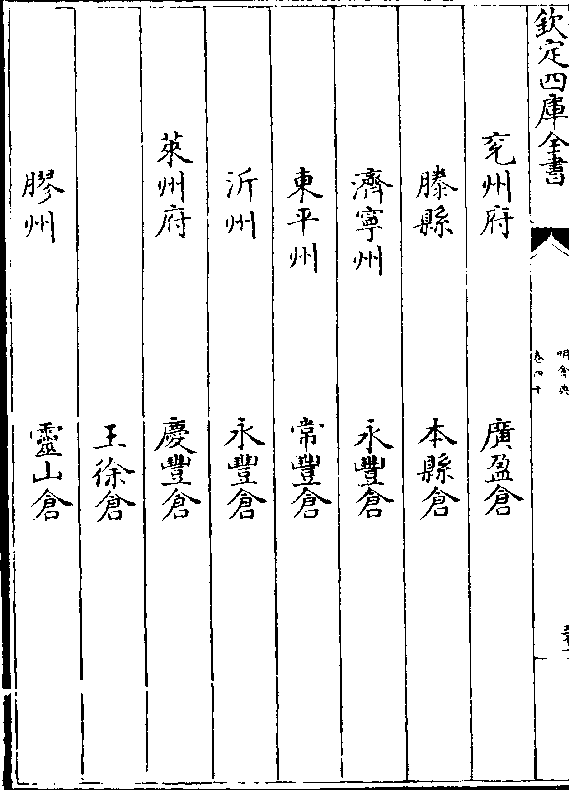 欽定四庫全書
明會典
卷四十
兖州府 廣盈倉
滕縣 本縣倉
濟寧州 永豐倉
東平州 常豐倉
沂州 永豐倉
萊州府 慶豐倉
王徐倉
膠州 靈山倉